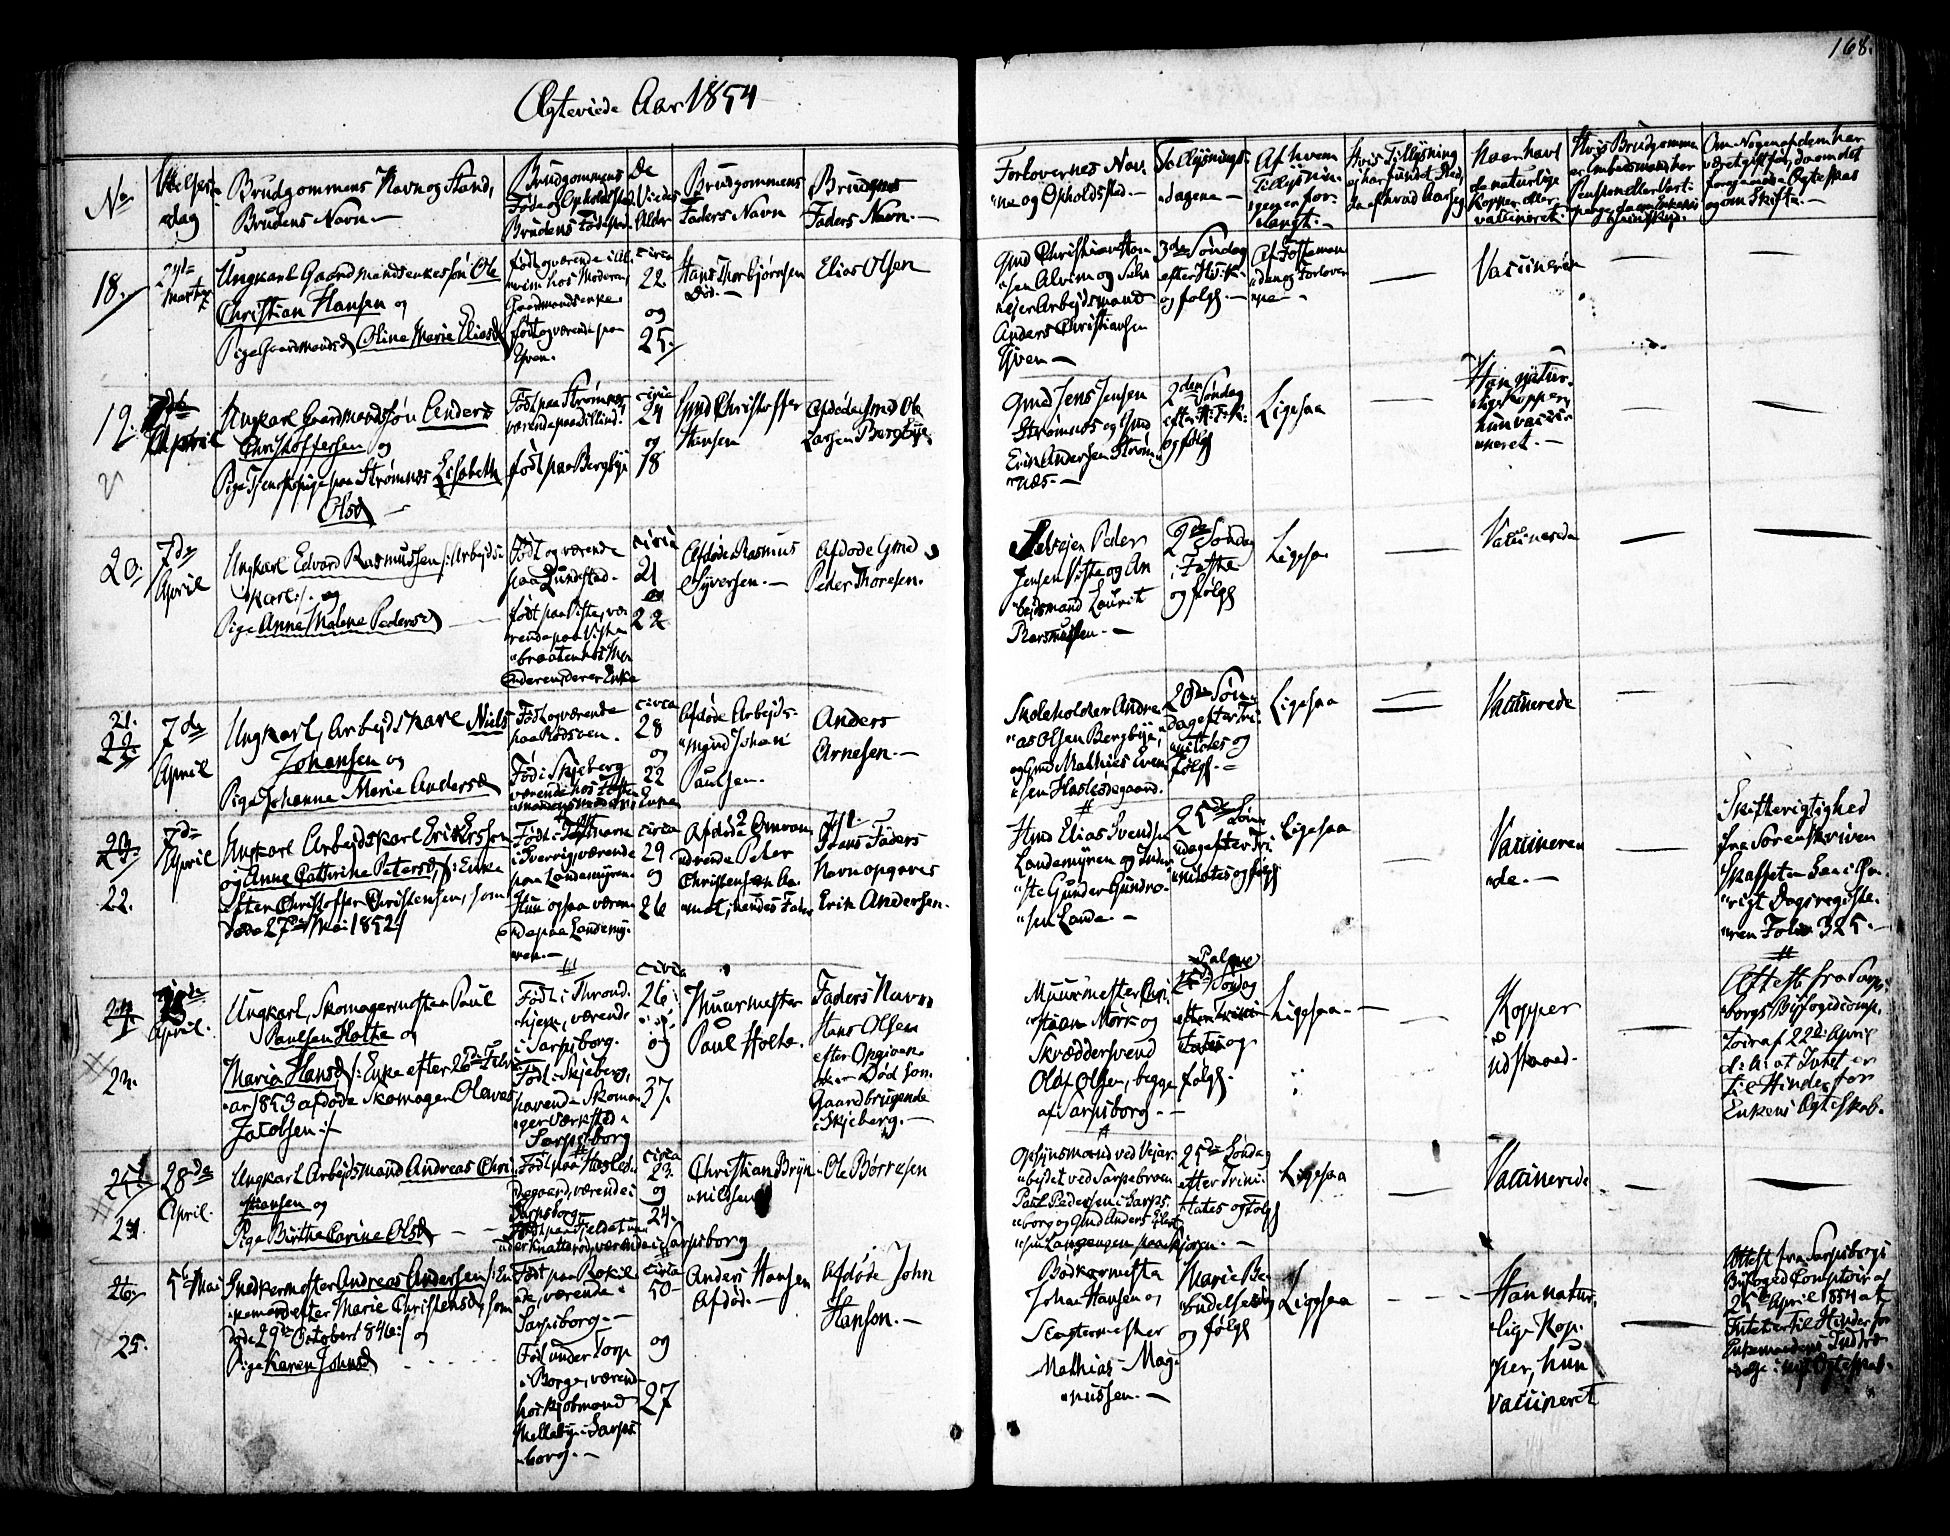 168.
Ægteviede Aar 1854
No
Vielses-
dag
Brudgommens Navn og Stand,
Brudens Navn.
Brudgommens
Føde og Opholdsted
Brudens Fødested
De
Viedes
Alder
Brudgommens
Faders Navn
Brudens
Faders Navn.
Forlovernes Nav-
ne og Opholdssted.
Tillysnings-
dagene
Af hvem
Tillysnin-
gen er for-
langt.
Hvis Tillysning
ei har fundet Sted,
da af hvad Aarsag
Naar havt
de naturlige
Kopper eller
vaccineret.
Hvis Brudgommen
er Embedsmand, har
Om Nogen af dem har
været gift før, da om det
foregaaende Ægteskab
og om Skifte.
18.
Martz
Ungkarl Gaardmandsenkesøn Ole
Christian Hansen og
Pige Gaardmandsd Oline Marie Eliasd
Født og værende i Al-
vim hos Moderen,
Gaardmandsenke.
født og værende paa
Yven.
circa
22
og
25.
Hans Thorbjørnsen
Død.
Elias Olsen
Gmd Christian
sen Alvim og Selv-
ejer Arbejdsmand
Anders Christiansen
Yven
3de Søndag
efter H.3.K.
og følg.
Af Fæsteman-
den og Forlover-
ne
Vaccinered
19.
April
Ungkarl Gaardmandssøn Anders
Christoffersen og
Pige Tjenestepige paa Strømnes Lisabeth
Olsd
Født paa Strømnes,
værende paa
født paa Bergbye
circa
24
og
18
Gmd Christoffer
Hansen
Afdøde Gmd Ole
Larsen Bergbye.
Gmd Jens Jensen
Strømnæs og Gmd
Erik Andersen Strøm-
næs.
2den Søndag
efter H.3.K.
og følg
Ligesaa
Han natur-
lige kopper,
hun vacci-
neret.
20.
7de
April
Ungkarl Edvard Rasmussen /: Arbejds-
karl :/ og
Pige Anne Malene Pedersd
Født og værende
paa Lundestad.
født paa Viste, væ-
rende paa Viste-
braaten hos Mo-
deren, der er Enke
circa
21
og
22
Afdøde Rasmus
Syversen.
Afdøde Gmd
Peder Thoresen.
Selvejer Peder
Jensen Viste og Ar-
bejdsmand Laurit
Rasmussen.
2den Søndag
i Faste
og følg
Ligesaa
Vaccinerede
21.
22.
7de
April
Ungkarl, Arbejdskarl Niels
Johansen og
Pige Johanne Marie Andersd
Født og værende
paa Rødsven.
Født i Skjeberg
circa
28
og
22
Afdøde Arbejds-
mand Johan
Paulsen.
Anders
Arnesen.
Skoleholder Andre-
as Olsen Bergbye,
og Gmd Mathias Even-
sen Hasledegaard.
20de Søn-
dag efter Tri-
nitatis og
følg.
Ligesaa
Vaccinerede
23.
22.
7de
April
Ungkarl Arbejdskarl Erik Ersson
og Anne Cathrine Petersd, /: Enke
efter Christoffer Christensen, som
døde 27de Mai 1852 :/
i Sverrig, værende
paa Landemyren.
Hun ogsaa væren-
de paa Landemy-
ren.
circa
29
og
26
Afdøde Omvan-
drende Peter
Christensen
hendes Fader
Hans Faders
Navn opgaves
Erik Andersen.
Hmd Elias Svendsen
Landemyren og Inder-
ste Gunder Gundro-
sen Lande.
25de Søn-
dag efter Tri-
nitatis og følg
Ligesaa
Vaccinere-
de.
Skifterigtighed
fra Sorenskriven
Skaffeten
Dagsregiste-
ren Folio 325.
24.
23.
April.
Ungkarl, Skomagermester Paul
Paulsen Holthe og
Maria Hansd /: Enke efter 26de Febru-
ar 1853 afdøde Skomager Olaves
Jacobsen :/
Født i Thrond-
hjem, værende
i Sarpsborg.
Født i Skjeberg,
havende Skoma-
gerværksted i
Sarpsborg
circa
26
og
37.
Muurmester
Paul Holte.
Faders Navn
Hans Olsen
efter Opgivende
Død som
Gaardbrugende
i Skjeberg.
Muurmester Chri-
stian Mørk og
Skræddersvend
Olaf Olsen, begge
af Sarpsborg.
Palme
Søndag
og
følg.
Ligesaa
Kopper
udstaaed.
Attest fra Sarps-
borgs Byfogedcomp-
toir af 22de April
at Intet er
til Hinder for
Enkens Ægteskab.
25
24
28de
April.
Ungkarl Arbejdsmand Andreas Chri-
stiansen og
Pige Birthe Carine Olsd
Født paa Hasle-
degaard, værende i
Sarpsborg
værende i Sarpsborg
circa
23.
og
24.
Christian Bryn-
nildsen
Ole Børresen
Opsynsmand ved Vejar-
bejdet ved Sarpebroen
Paul Pedersen i Sarps-
borg og Gmd Anders Ejlert-
sen
25de Søndag
efter Trini-
tatis og følg
Ligesaa
Vaccinerede
26.
25.
5te Mai
Snedkermester Andreas Andersen /: En-
kemand efter Marie Christensd, som
døde 29de October 1846 :/ og
Pige Karen Johnsd
Født paa Rokil-
de, værende i
Sarpsborg.
Født under Torp
i Borge, værende
hos Kjøbmand
Melleby i Sarps-
borg.
circa
50
og
27
Anders Hansen
Afdød.
Afdøde John
Hanson.
Bødkermester
Johan Hansen og
Slagtermester
Mathias Mag-
nussen.
Marie Be-
budelsesdag
og følg
Ligesaa
Han natur-
lige Kop-
per, hun
vaccineret
Attest fra Sarpsborgs
Byfoged Comptoir af
25de April 1854 at
Intet er til Hinder for
Enkemandens Indtræ-
delse i nyt Ægteskab.